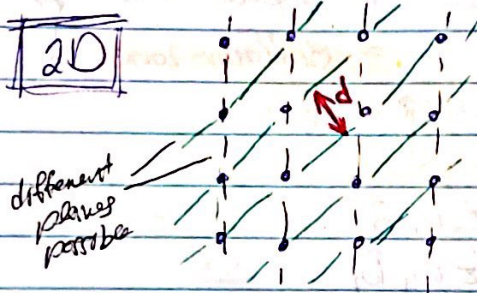 2D
d
different
planes
possible